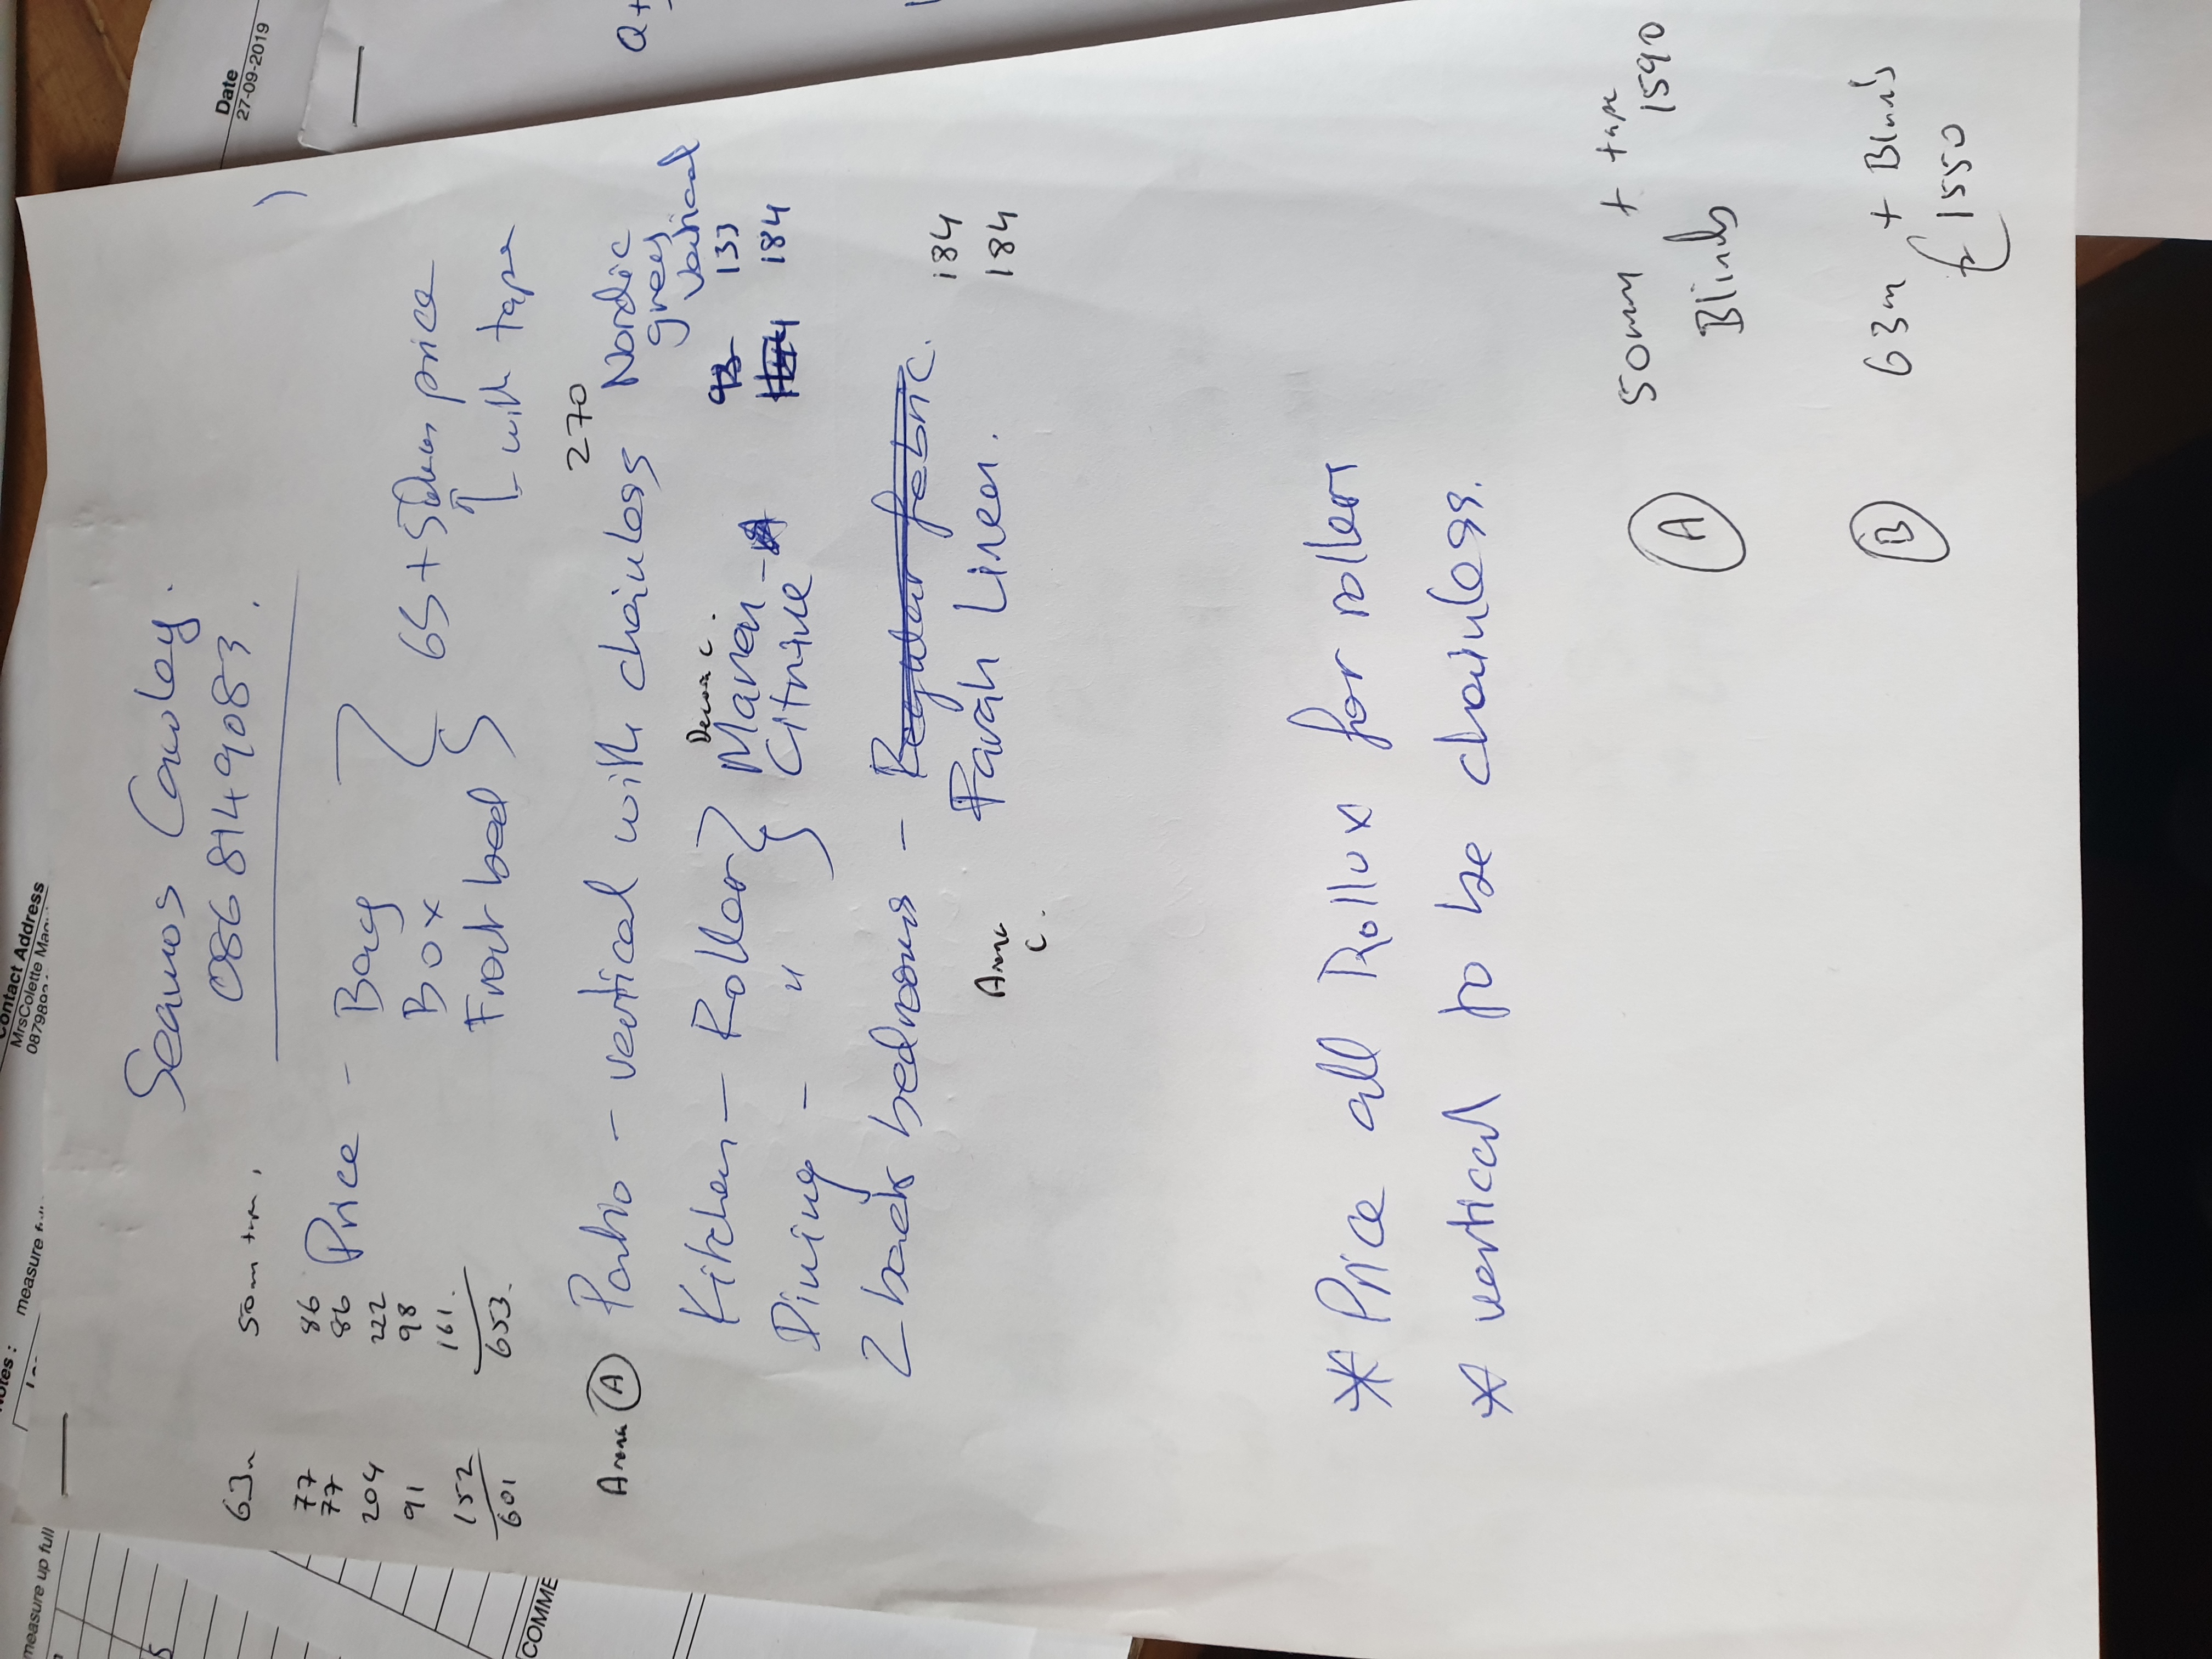 Date
27-09-2019
Contact Address
MrsColette
measure up full
COMME
Seamus Cawley.
086 8149083.
63m 50m tape
77 86
77 86
204 222
91 98
152 161.
601 653.
Price - Bay
Box
Front bed
65 + 50mm price
with tape
270
Anna (A) Patio - vertical with chainless Nordic
grey
vertical
Kitchen - Roller Maren - 133
Dining - " Citrine 184
2 back bedrooms - Regular fabric. 184
Farah Linen. 184
Anna
C.
* Price all Rollux for rollers
* vertical to be chainless.
(A) 50mm + tape
Blinds 1590
(B) 63m + Blinds
1550